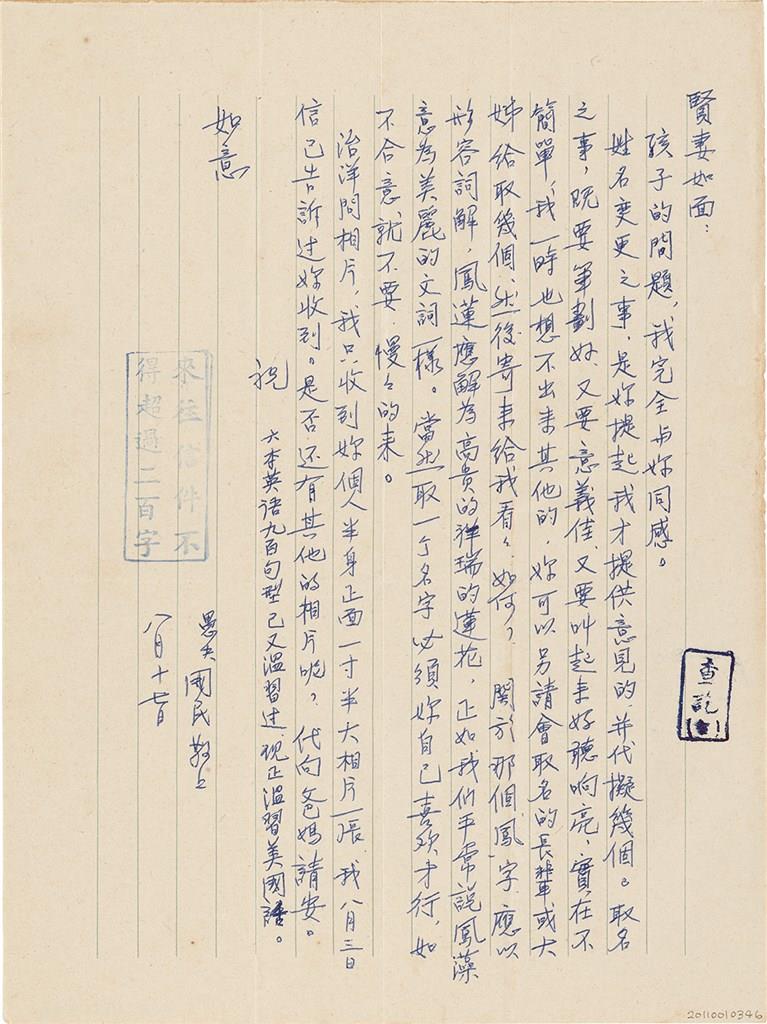 賢妻如面：
孩子的問題，我完全与妳同感。
姓名变更之事，是妳提起我才提供意見的，并代擬幾個。取名
之事，既要筆劃好、又要意義佳、又要叫起来好聽响亮，實在不
簡單，我一時也想不出来其他的，妳可以另請會取名的長輩或大
姊給取幾個，然後寄来給我看々如何？ 関於那個「鳳」字，應以
形容詞解，鳳蓮應解為高貴的祥瑞的蓮花，正如我们平常說鳳藻
意為美麗的文詞一樣。當然取一个名字必須妳自己喜欢才行，如
不合意就不要，慢々的来。
治洋問相片，我只收到妳個人半身正面一寸半大相片一張，我八月三日
信已告訴过妳收到。是否還有其他的相片呢？ 代向爸媽請安。
祝 六本英语九百句型已又溫習过，現正溫習美國語。
如意
愚夫國民敬上
八月十七日
來往信件不
得超過二百字
查訖
20110010346